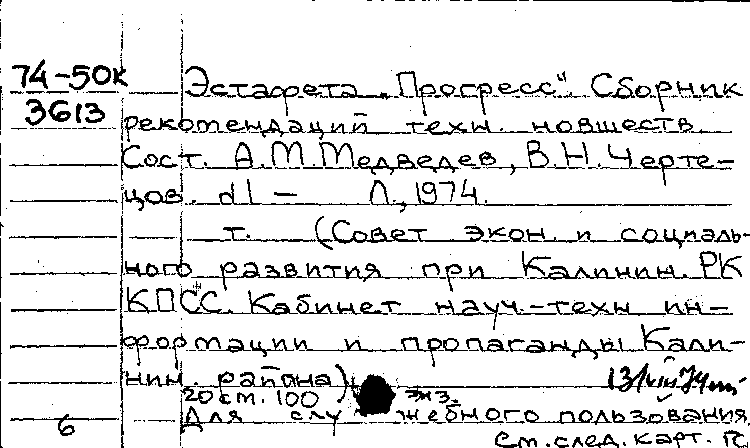 74-50к
3613
Эстафета „Прогресс". Сборник
рекомендаций техн. новшеств.
Сост. А.М.Медведев, В.Н.Черте-
цов. Л., 1974.
т. (Совет экон. и социаль-
ного развития при Калинин. РК
КПСС. Кабинет науч.-техн ин-
формации и пропаганды Кали-
нин. района)
20 см. 100 экз.
6 Для служебного пользования
См. след. карт.